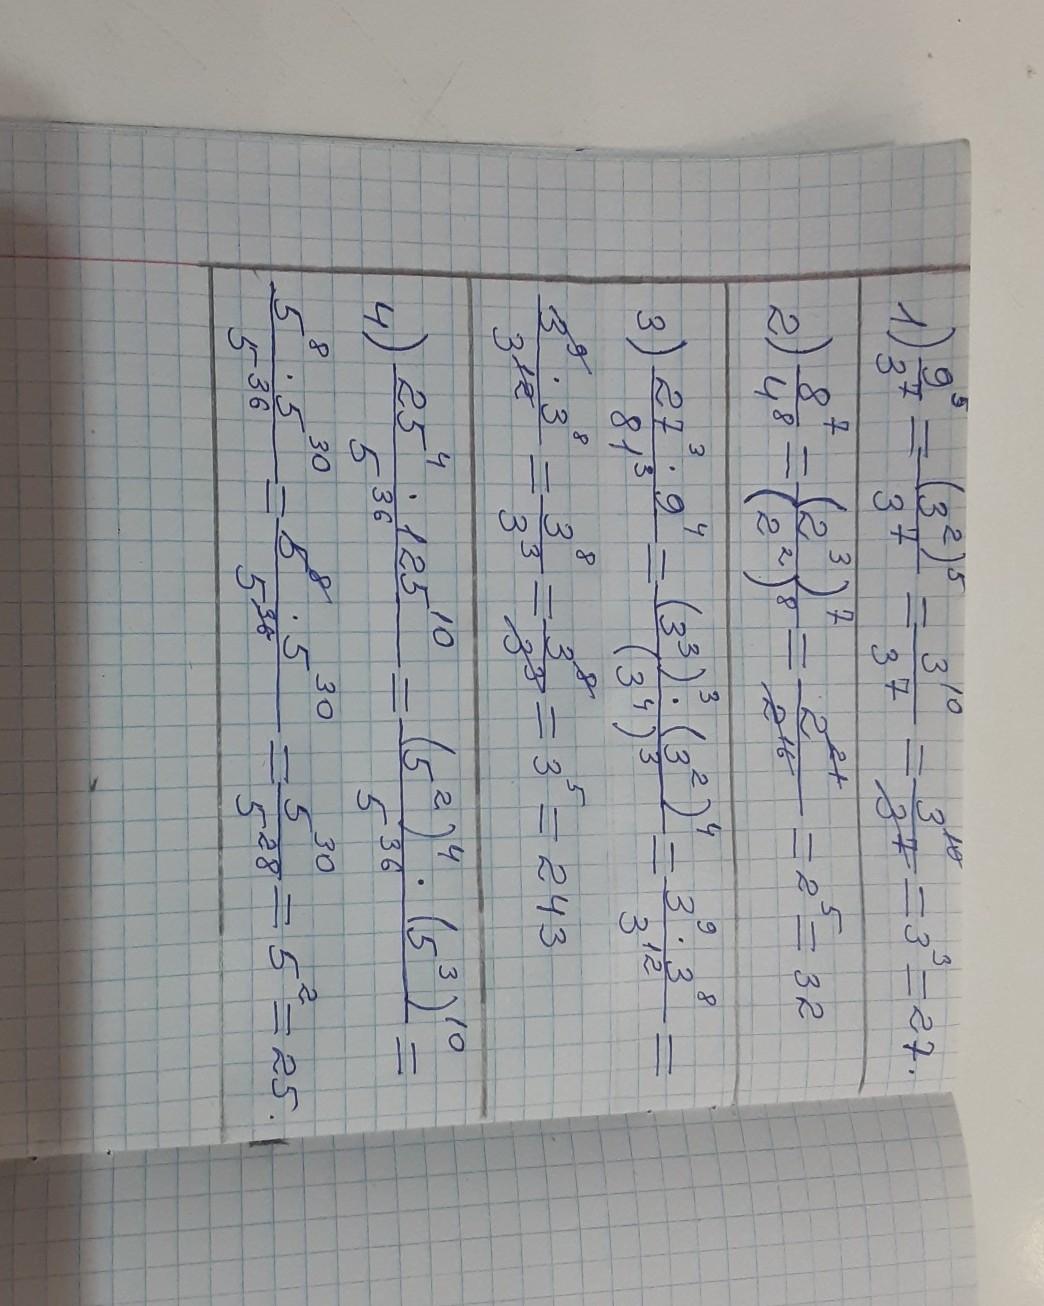 1) 9⁵/3⁷ = (3²)⁵/3⁷ = 3¹⁰/3⁷ = 3¹⁰/3⁷ = 3³ = 27.
2) 8⁷/4⁸ = (2³)⁷/(2²)⁸ = 2²¹/2¹⁶ = 2⁵ = 32
3) 27³·9⁴/81³ = (3³)³·(3²)⁴/(3⁴)³ = 3⁹·3⁸/3¹² =
3⁹·3⁸/3¹² = 3⁸/3³ = 3⁸/3³ = 3⁵ = 243
4) 25⁴·125¹⁰/5³⁶ = (5²)⁴·(5³)¹⁰/5³⁶ =
5⁸·5³⁰/5³⁶ = 5⁸·5³⁰/5³⁶ = 5³⁰/5²⁸ = 5² = 25.